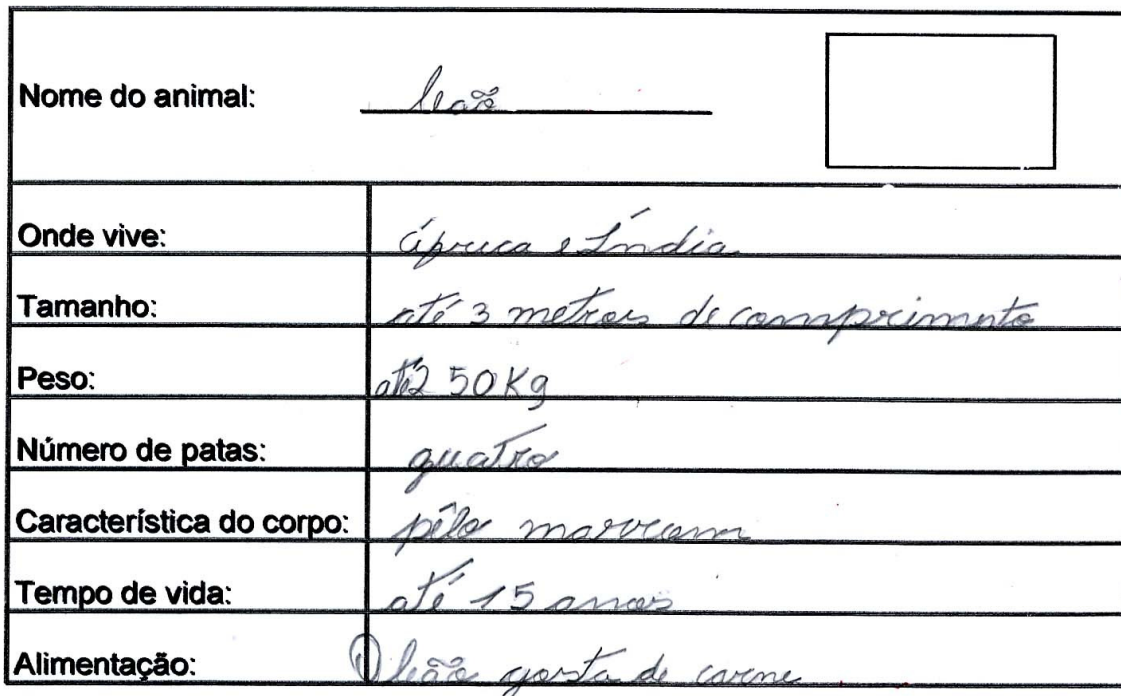 Nome do animal: leão
Onde vive: áfrica e Índia
Tamanho: até 3 metros de comprimento
Peso: até 250 Kg
Número de patas: quatro
Característica do corpo: pêlo marrom
Tempo de vida: até 15 anos
Alimentação: O leão gosta de carne